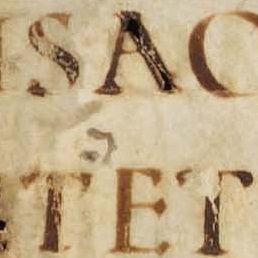 ISAC
TET